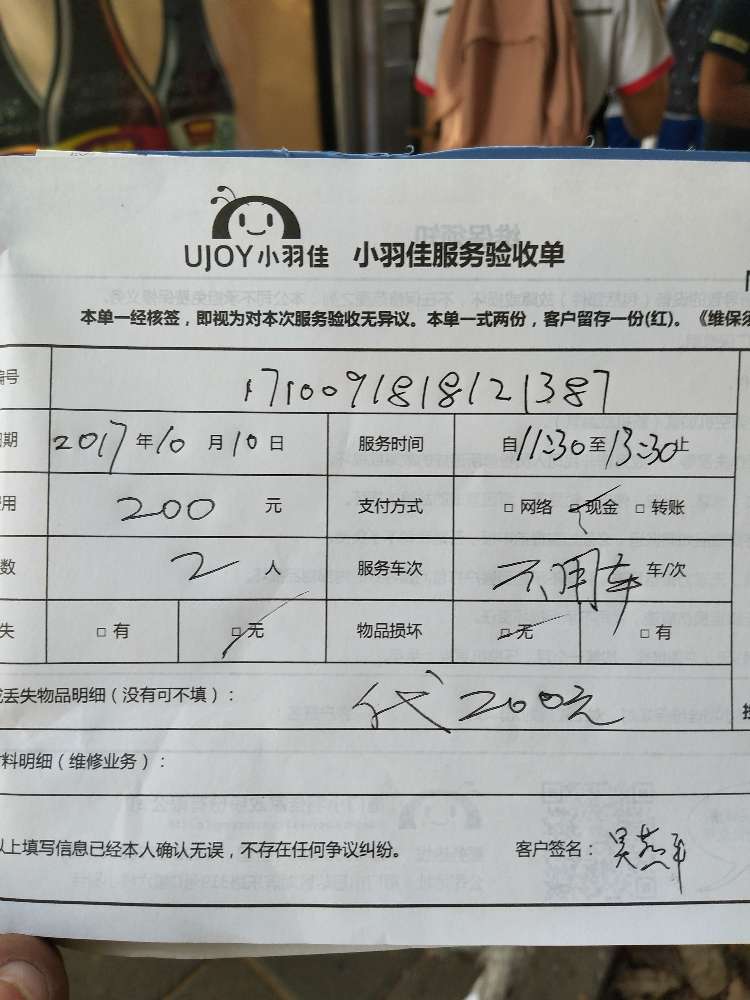 UJOY小羽佳 小羽佳服务验收单
本单一经核签，即视为对本次服务验收无异议。本单一式两份，客户留存一份(红)。《维保须
编号 1710091818121387
日期 2017年10月10日 服务时间 自11:30至13:30止
费用 200 元 支付方式 □网络 □现金 □转账
数 2 人 服务车次 不用车 车/次
失 □有 □无 物品损坏 □无 □有
或丢失物品明细（没有可不填）： 代200元
材料明细（维修业务）：
以上填写信息已经本人确认无误，不存在任何争议纠纷。 客户签名：吴燕